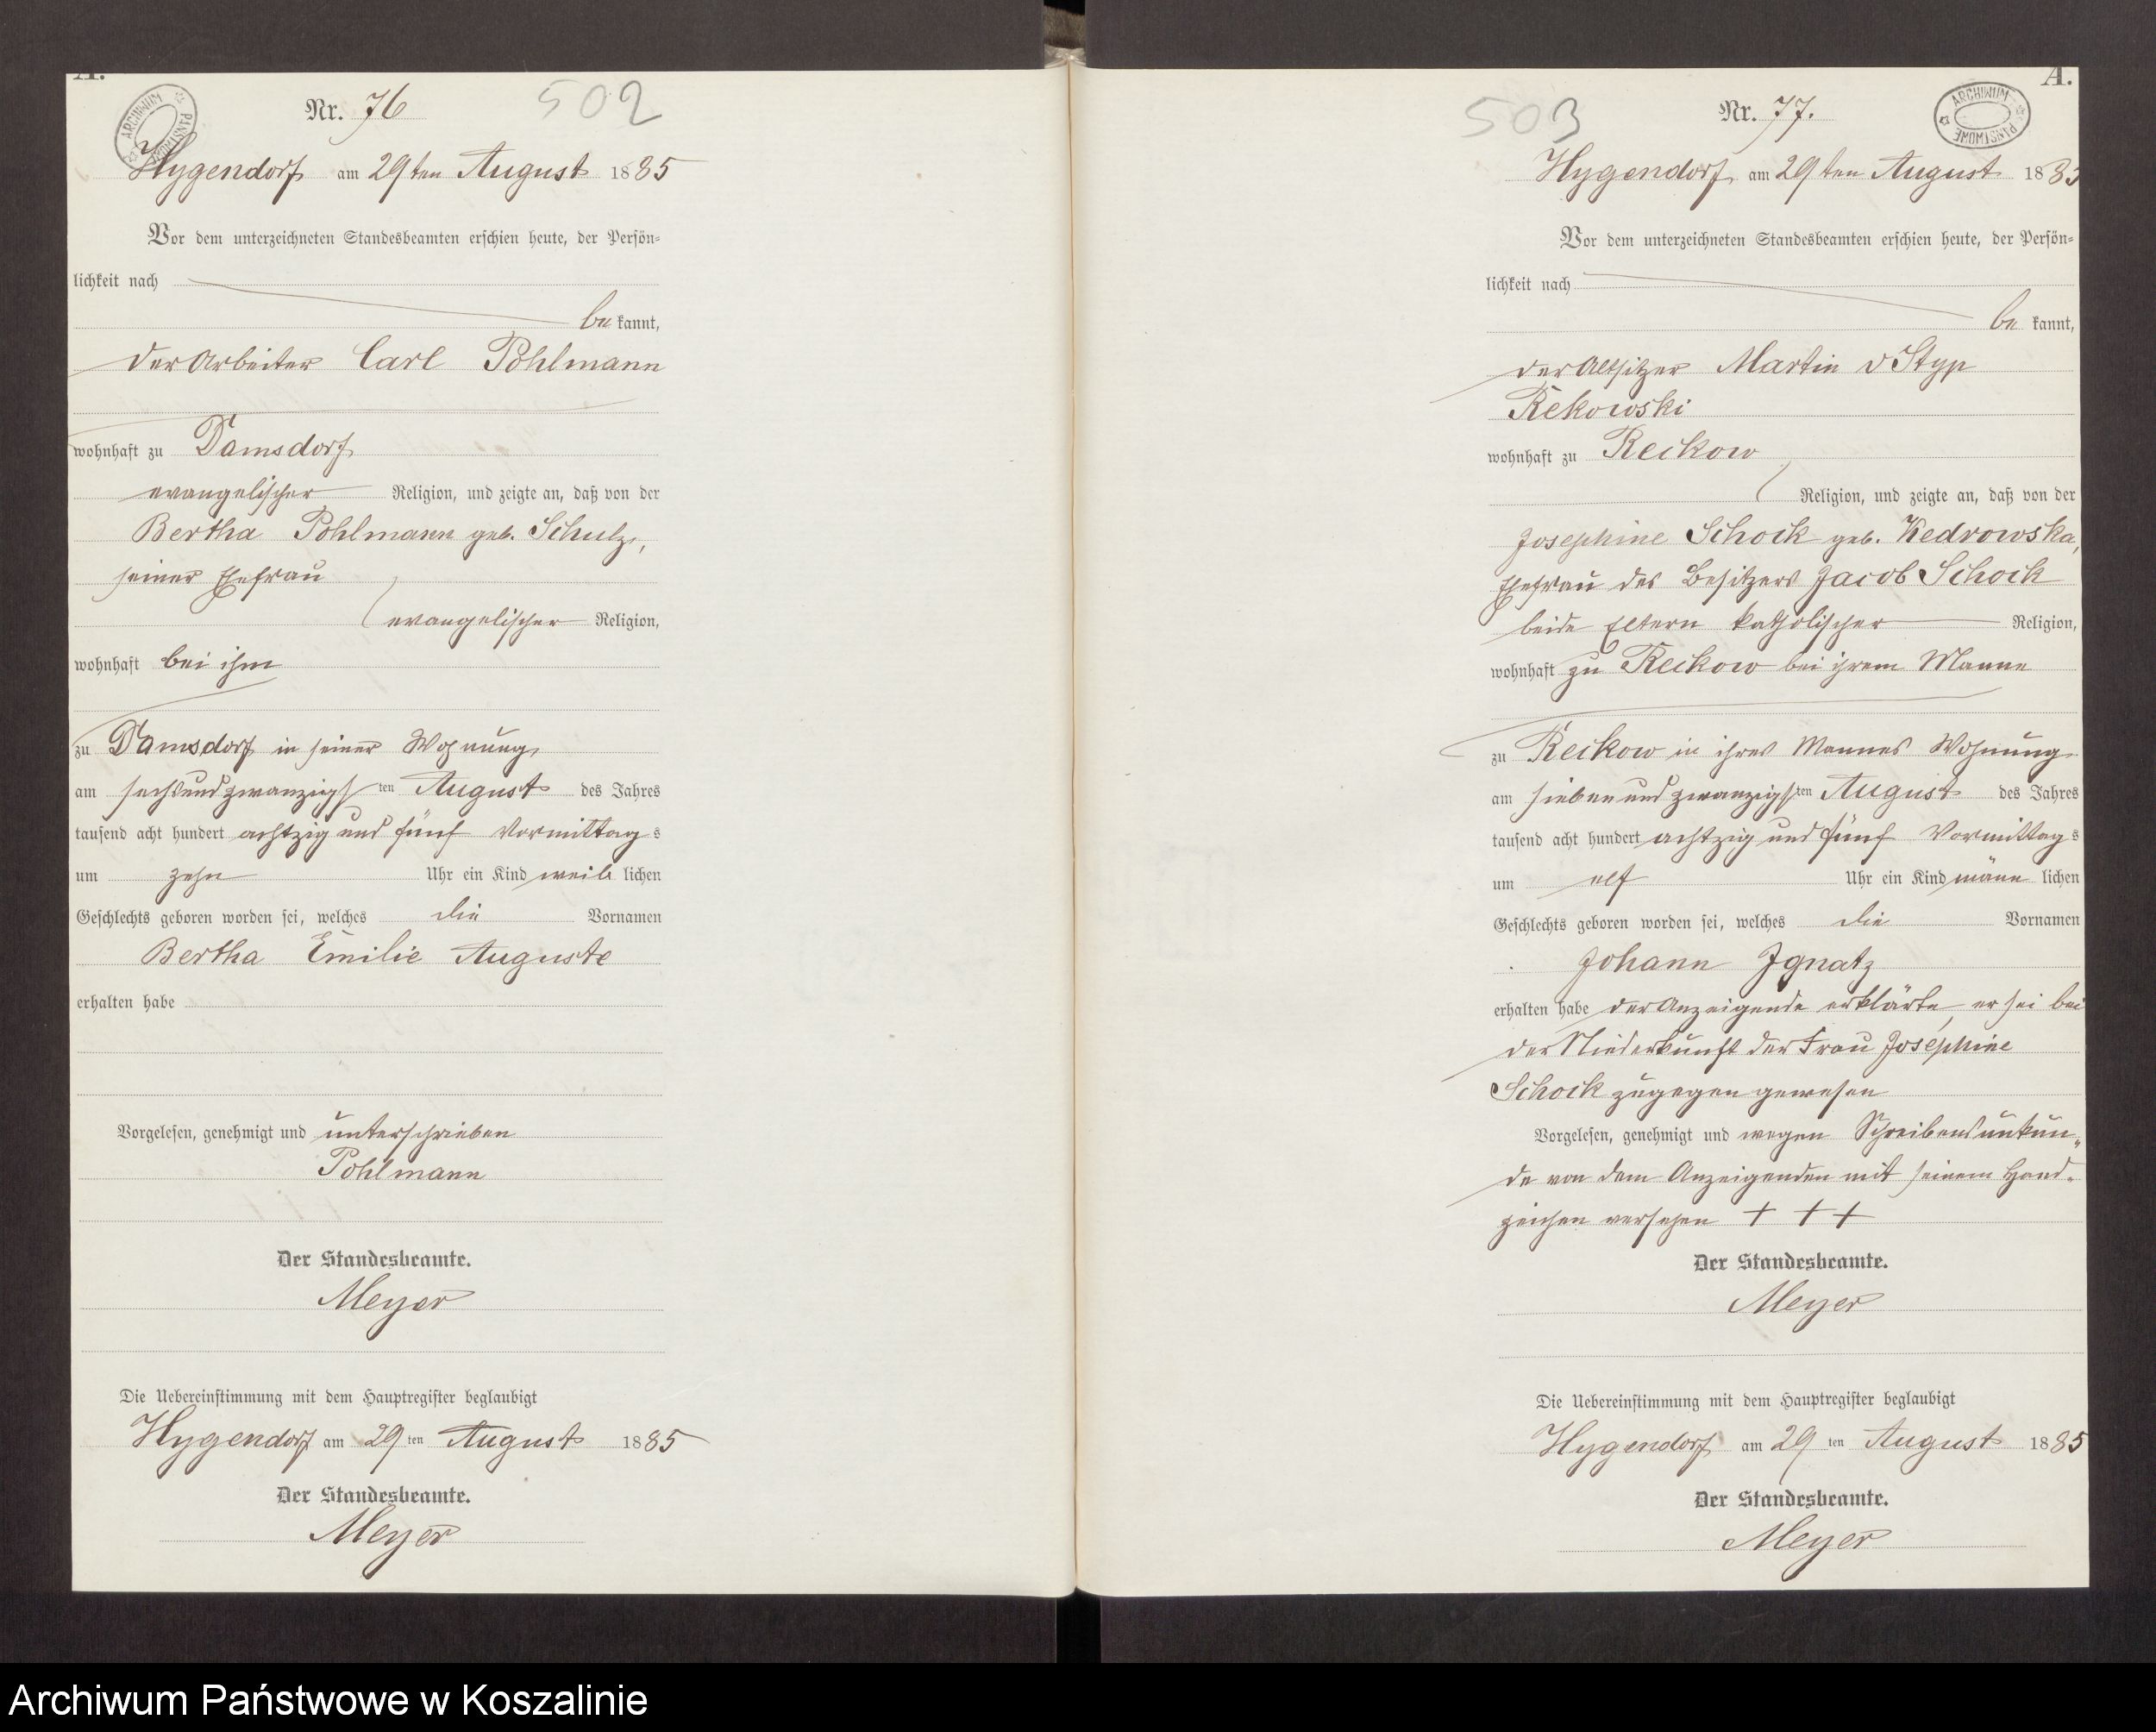 A.
ARCHIWUM PAŃSTWOWE
Nr. 76
502
Hygendorf am 29ten August 1885
Vor dem unterzeichneten Standesbeamten erschien heute, der Persön=
lichkeit nach
be kannt,
der Arbeiter Carl Pohlmann
wohnhaft zu Damsdorf
evangelischer Religion, und zeigte an, daß von der
Bertha Pohlmann geb. Schulz,
seiner Ehefrau
evangelischer Religion,
wohnhaft bei ihm
zu Damsdorf in seiner Wohnung
am sechsundzwanzigsten August des Jahres
tausend acht hundert achtzig und fünf Vormittags
um zehn Uhr ein Kind weib lichen
Geschlechts geboren worden sei, welches die Vornamen
Bertha Emilie Auguste
erhalten habe
Vorgelesen, genehmigt und unterschrieben
Pohlmann
Der Standesbeamte.
Meyer
Die Uebereinstimmung mit dem Hauptregister beglaubigt
Hygendorf am 29 ten August 1885
Der Standesbeamte.
Meyer
A.
ARCHIWUM PAŃSTWOWE
503
Nr. 77.
Hygendorf am 29ten August 1885
Vor dem unterzeichneten Standesbeamten erschien heute, der Persön=
lichkeit nach
be kannt,
der Altsitzer Martin v Styp
Rekowski
wohnhaft zu Reckow
Religion, und zeigte an, daß von der
Josephine Schock geb. Kedrowska,
Ehefrau des Besitzers Jacob Schock
beide Eltern katholischer Religion,
wohnhaft zu Reckow bei ihrem Manne
zu Reckow in ihres Mannes Wohnung
am siebenundzwanzigsten August des Jahres
tausend acht hundert achtzig und fünf Vormittags
um elf Uhr ein Kind männ lichen
Geschlechts geboren worden sei, welches die Vornamen
Johann Ignatz
erhalten habe der Anzeigende erklärte, er sei bei
der Niederkunft der Frau Josephine
Schock zugegen gewesen
Vorgelesen, genehmigt und wegen Schreibensunkun=
de von dem Anzeigenden mit seinem Hand=
zeichen versehen + + +
Der Standesbeamte.
Meyer
Die Uebereinstimmung mit dem Hauptregister beglaubigt
Hygendorf am 29 ten August 1885
Der Standesbeamte.
Meyer
Archiwum Państwowe w Koszalinie